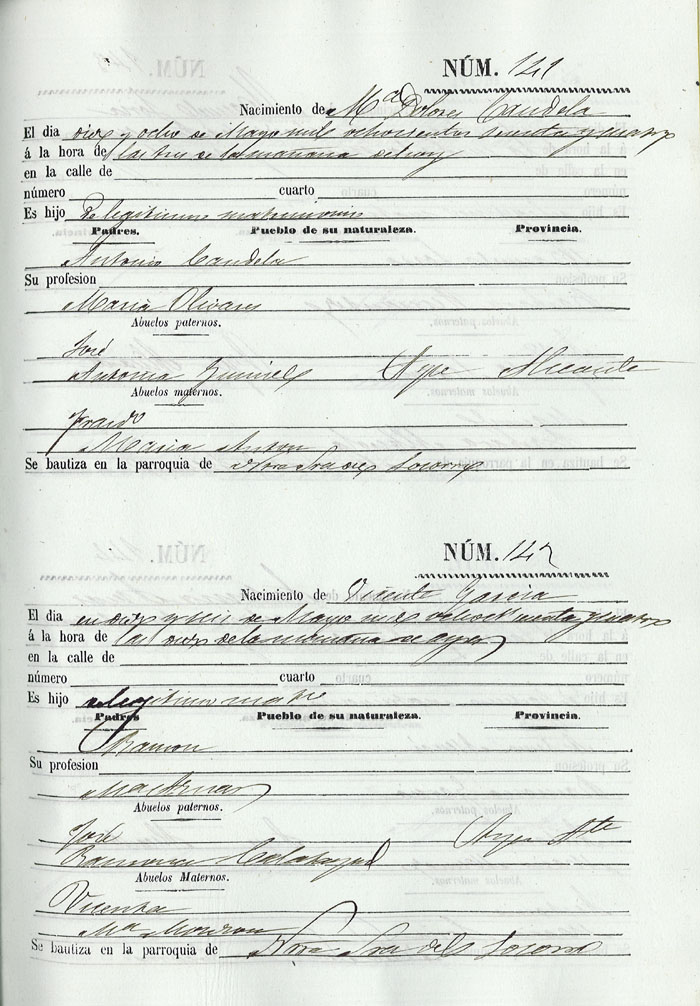 NÚM. 141
Nacimiento de Mª Dolores Candela
El dia diez y ocho de Mayo mil ochocientos setenta y cuatro
á la hora de las tres de la mañana del
en la calle de
número cuarto
Es hijo De legitimo matrimonio
Padres. Pueblo de su naturaleza. Provincia.
Antonio Candela
Su profesion
Maria Olivares
Abuelos paternos.
José
Antonia Aspe Alicante
Abuelos maternos.
Maria Anton
Se bautiza en la parroquia de Ntra Sra del Socorro
NÚM. 142
Nacimiento de Vicente Garcia
El dia en diez y seis de Mayo mil setenta y cuatro
á la hora de las diez de la mañana de ayer
en la calle de
número cuarto
Es hijo de legitimo
Padres Pueblo de su naturaleza. Provincia.
Ramon
Su profesion
Mª
Abuelos paternos.
José Aspe Ate
Ramona Calatayud
Abuelos Maternos.
Mª
Se bautiza en la parroquia de Ntra Sra del Socorro